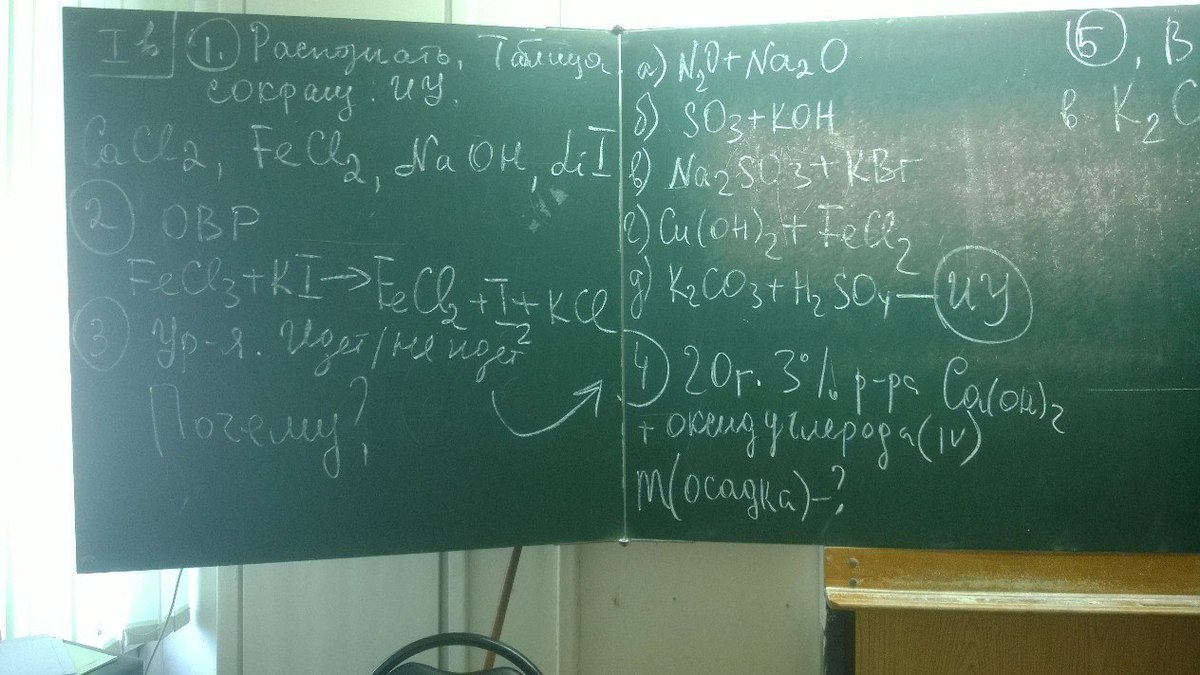 I в 1. Распознать, Таблица
сокращ. ИУ.
CaCl₂, FeCl₂, NaOH, LiI
2 ОВР
FeCl₃+KI→FeCl₂+I₂+KCl
3 Ур-я. Идет/не идет
Почему?
а) N₂O+Na₂O
б) SO₃+KOH
в) Na₂SO₃+KBr
г) Cu(OH)₂+FeCl₂
д) K₂CO₃+H₂SO₄ — ИУ
4) 20г. 3% р-ра Ca(OH)₂
+ оксид углерода (IV)
m(осадка)-?
5, В
в K₂C